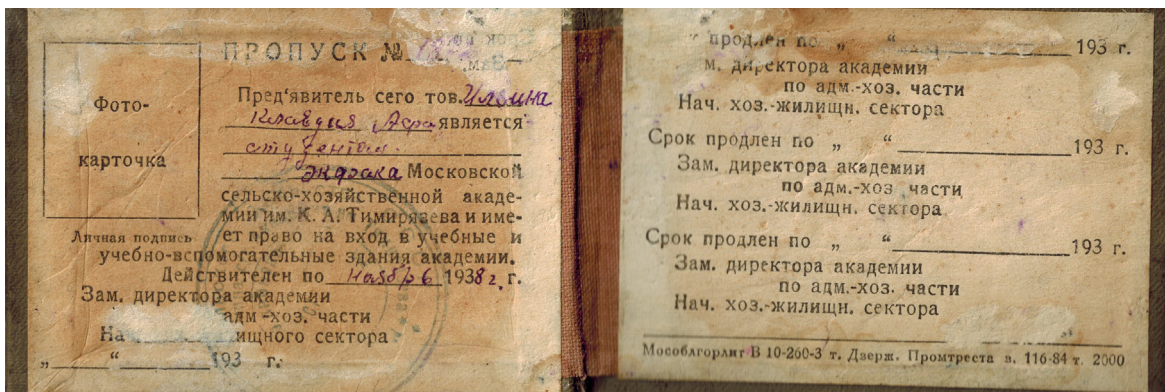 ПРОПУСК №
Фото-
карточка
Личная подпись
Пред'явитель сего тов. Ильина
Клавдия Афа является
студентом
экфака Московской
сельско-хозяйственной акаде-
мии им. К. А. Тимирязева и име-
ет право на вход в учебные и
учебно-вспомогательные здания академии.
Действителен по ноябрь 1938 г. г.
Зам. директора академии
адм-хоз. части
На ищного сектора
„ “ 193 г.
продлен по „ “ 193 г.
м. директора академии
по адм.-хоз. части
Нач. хоз.-жилищн. сектора
Срок продлен по „ “ 193 г.
Зам. директора академии
по адм.-хоз части
Нач. хоз.-жилищн. сектора
Срок продлен по „ “ 193 г.
Зам. директора академии
по адм.-хоз. части
Нач. хоз.-жилищн. сектора
Мособлгорлит В 10-260-3 т. Дзерж. Промтреста з. 116-84 т. 2000